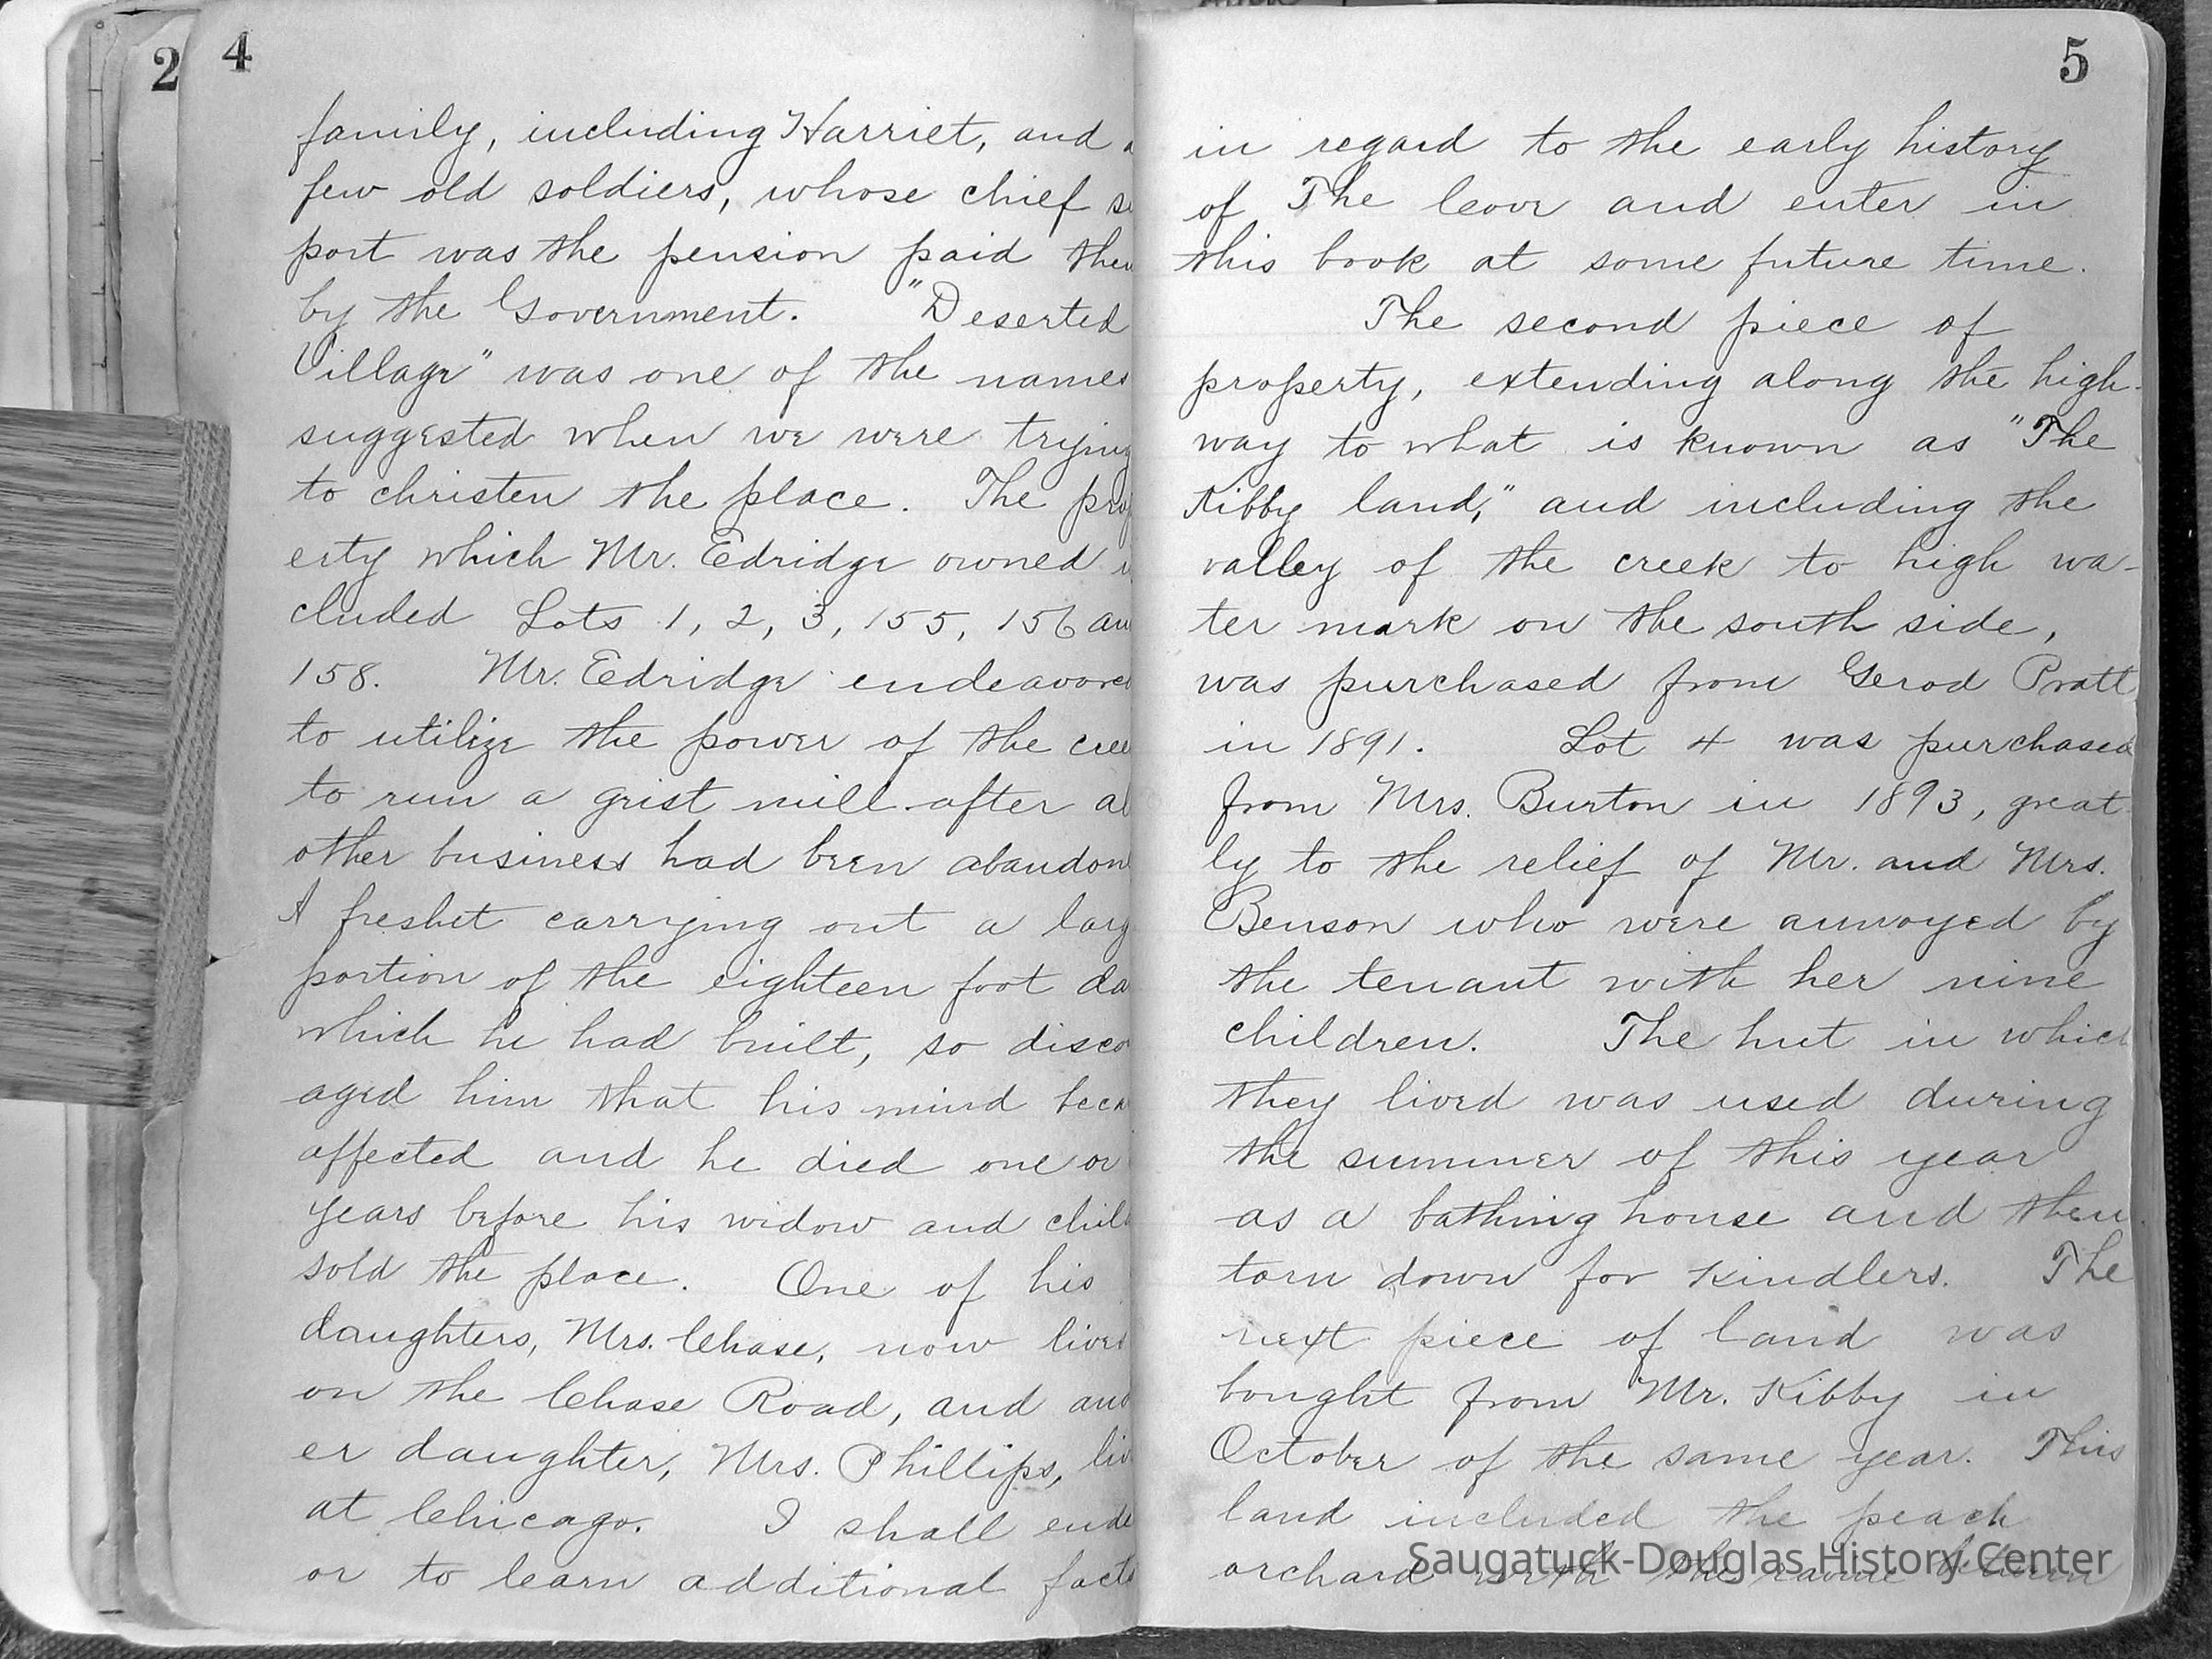 2
4
family, including Harriet, and a
few old soldiers, whose chief su
port was the pension paid them
by the Government. "Deserted
Village" was one of the names
suggested when we were trying
to christen the place. The prop
erty which Mr. Edridge owned in
cluded Lots 1, 2, 3, 155, 156 an
158. Mr. Edridge endeavored
to utilize the power of the cree
to run a grist mill after al
other business had been abandon
A freshet carrying out a larg
portion of the eighteen foot da
which he had built, so disco
aged him that his mind beca
affected and he died one or
years before his widow and child
sold the place. One of his
daughters, Mrs. Chase, now lives
on the Chase Road, and ano
er daughter, Mrs. Phillips, liv
at Chicago. I shall ende
or to learn additional facts
5
in regard to the early history
of The Cove and enter in
this book at some future time.
The second piece of
property, extending along the high-
way to what is known as "The
Kibby land," and including the
valley of the creek to high wa-
ter mark on the south side,
was purchased from Gerod Pratt
in 1891. Lot 4 was purchased
from Mrs. Burton in 1893, great-
ly to the relief of Mr. and Mrs.
Benson who were annoyed by
the tenant with her nine
children. The hut in which
they lived was used during
the summer of this year
as a bathing house and then
torn down for kindlers. The
next piece of land was
bought from Mr. Kibby in
October of the same year. This
land included the peach
orchard with the ravine between
Saugatuck-Douglas History Center